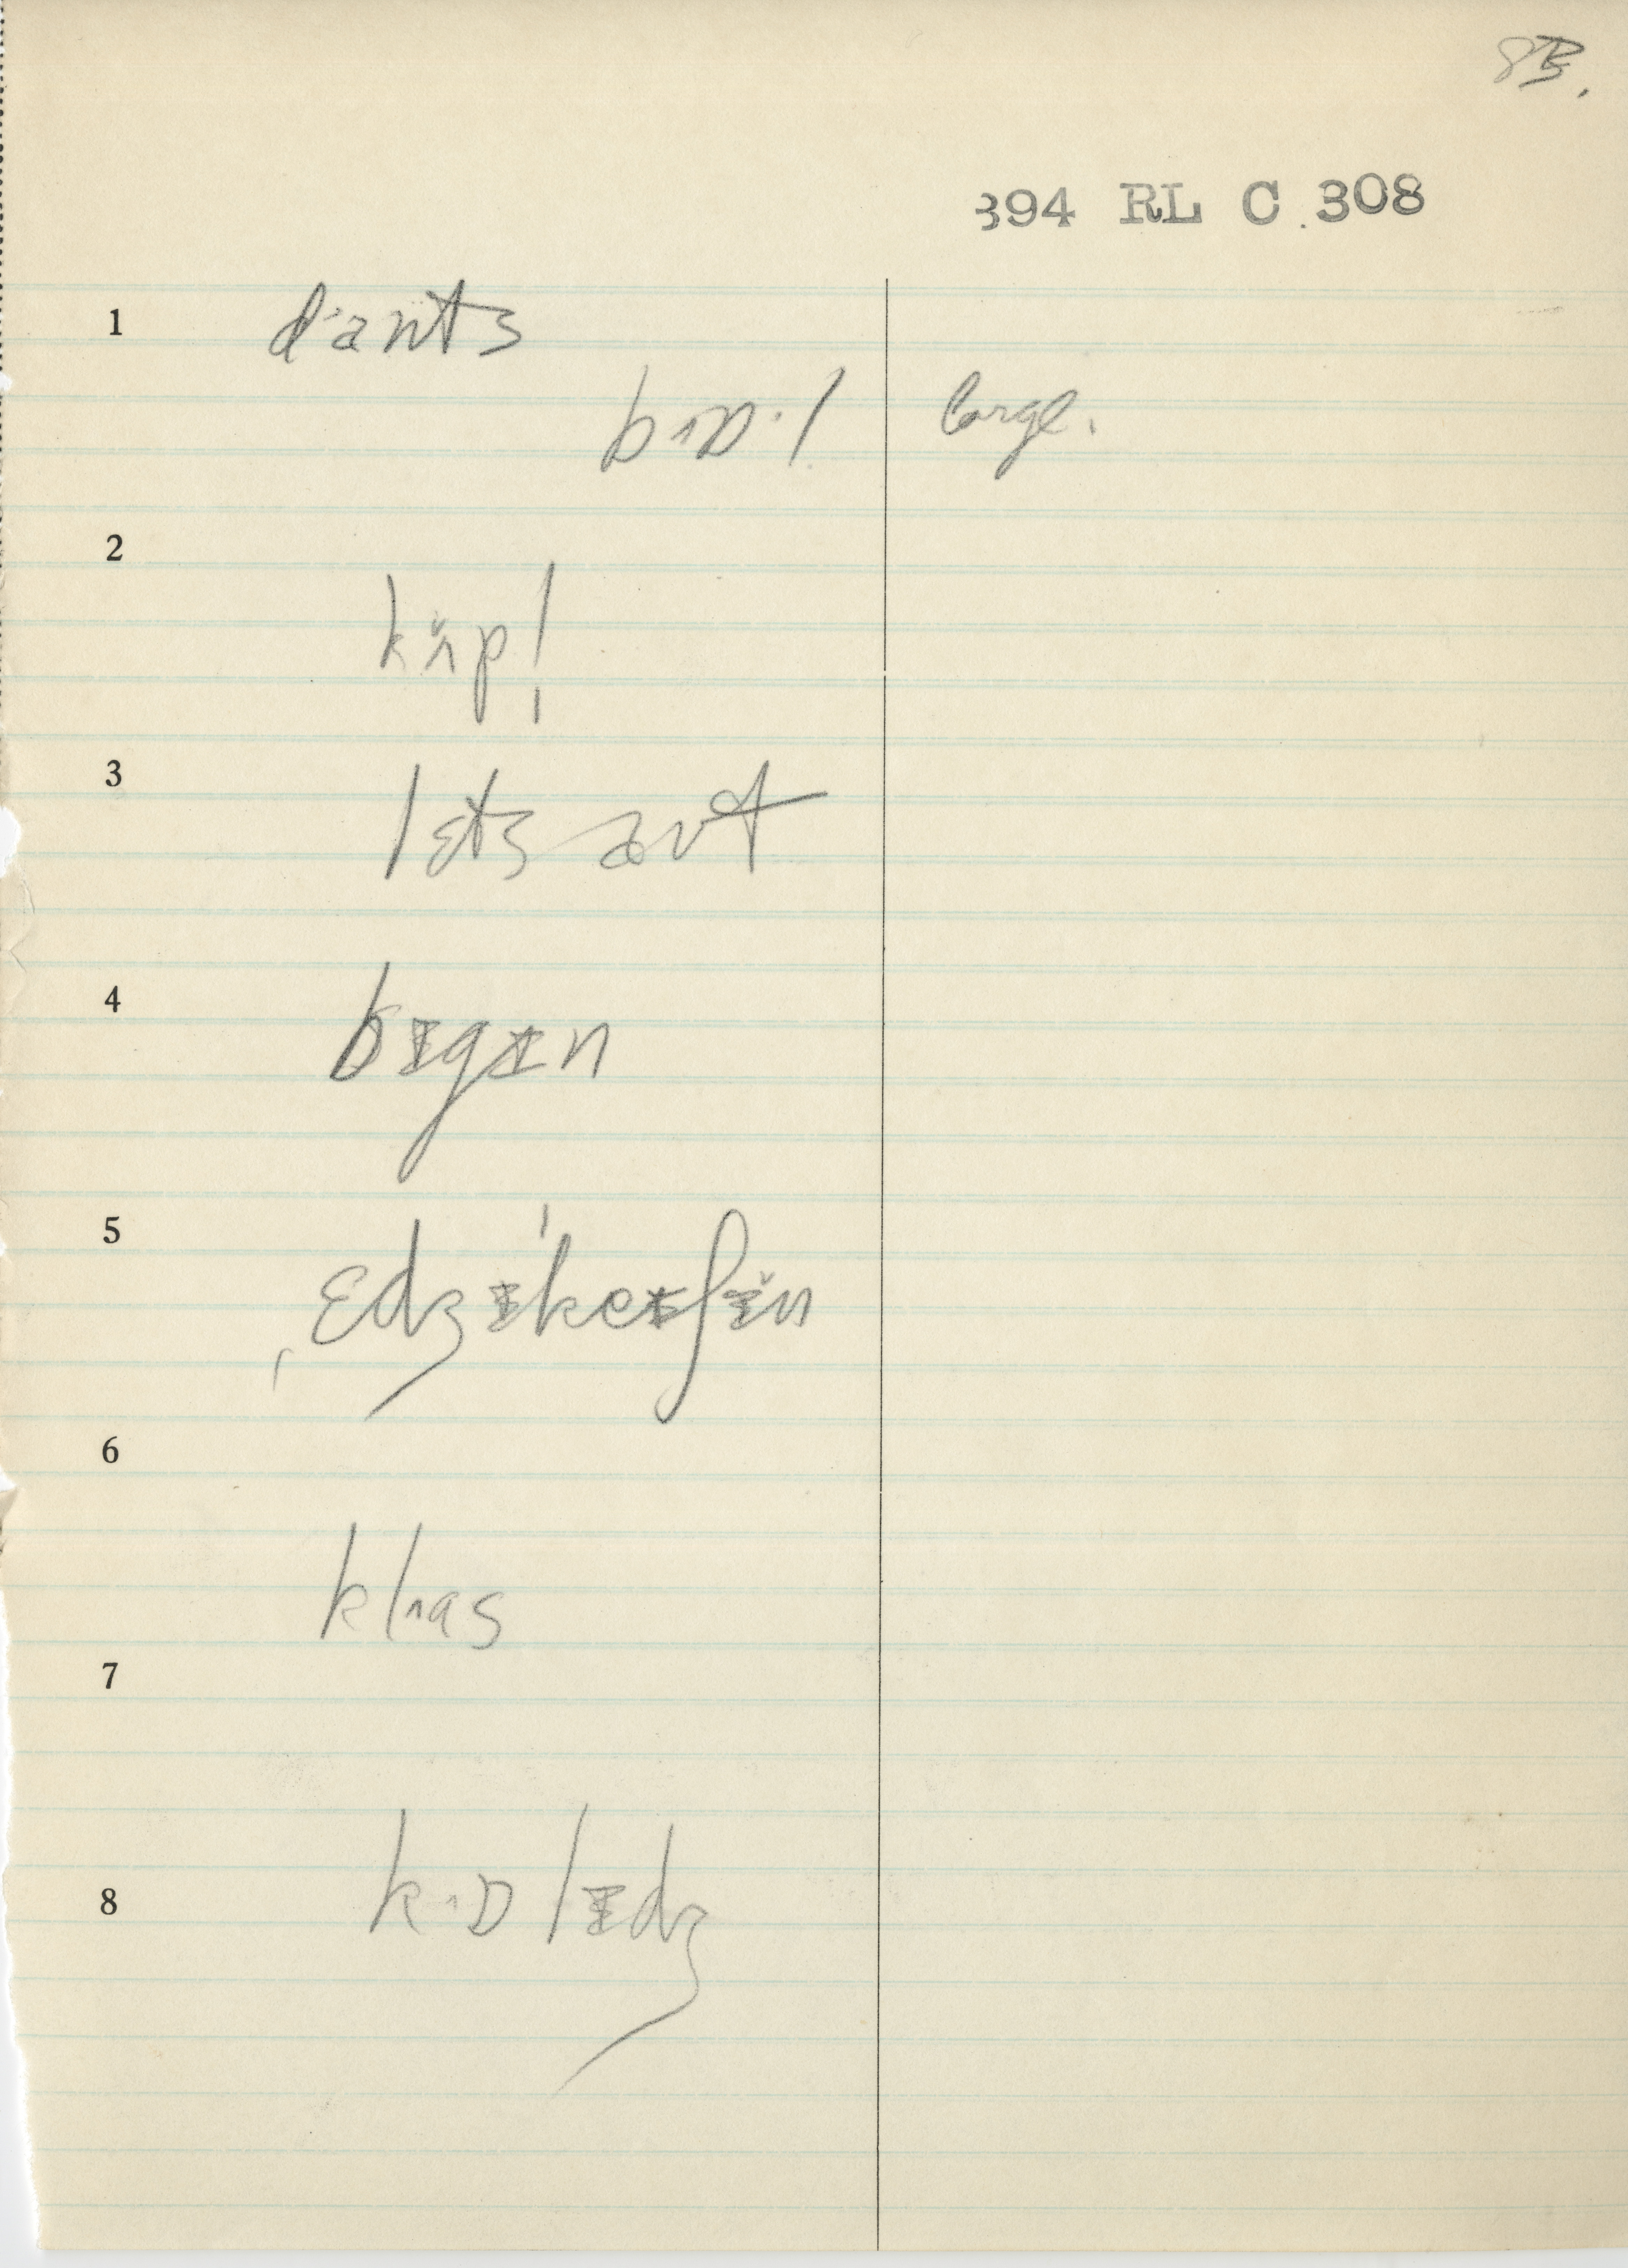 83.
394 RL C 308
1 d˄ants
b˄ɒ·l large.
2
kʌ̆p!
3
lɛts aʊt
4 bɪgɪn
5 ˌɛdʒɪˈkeɪʃɪ̆n
6
kl˄as
7
8 k˄ɒlɪdʒ